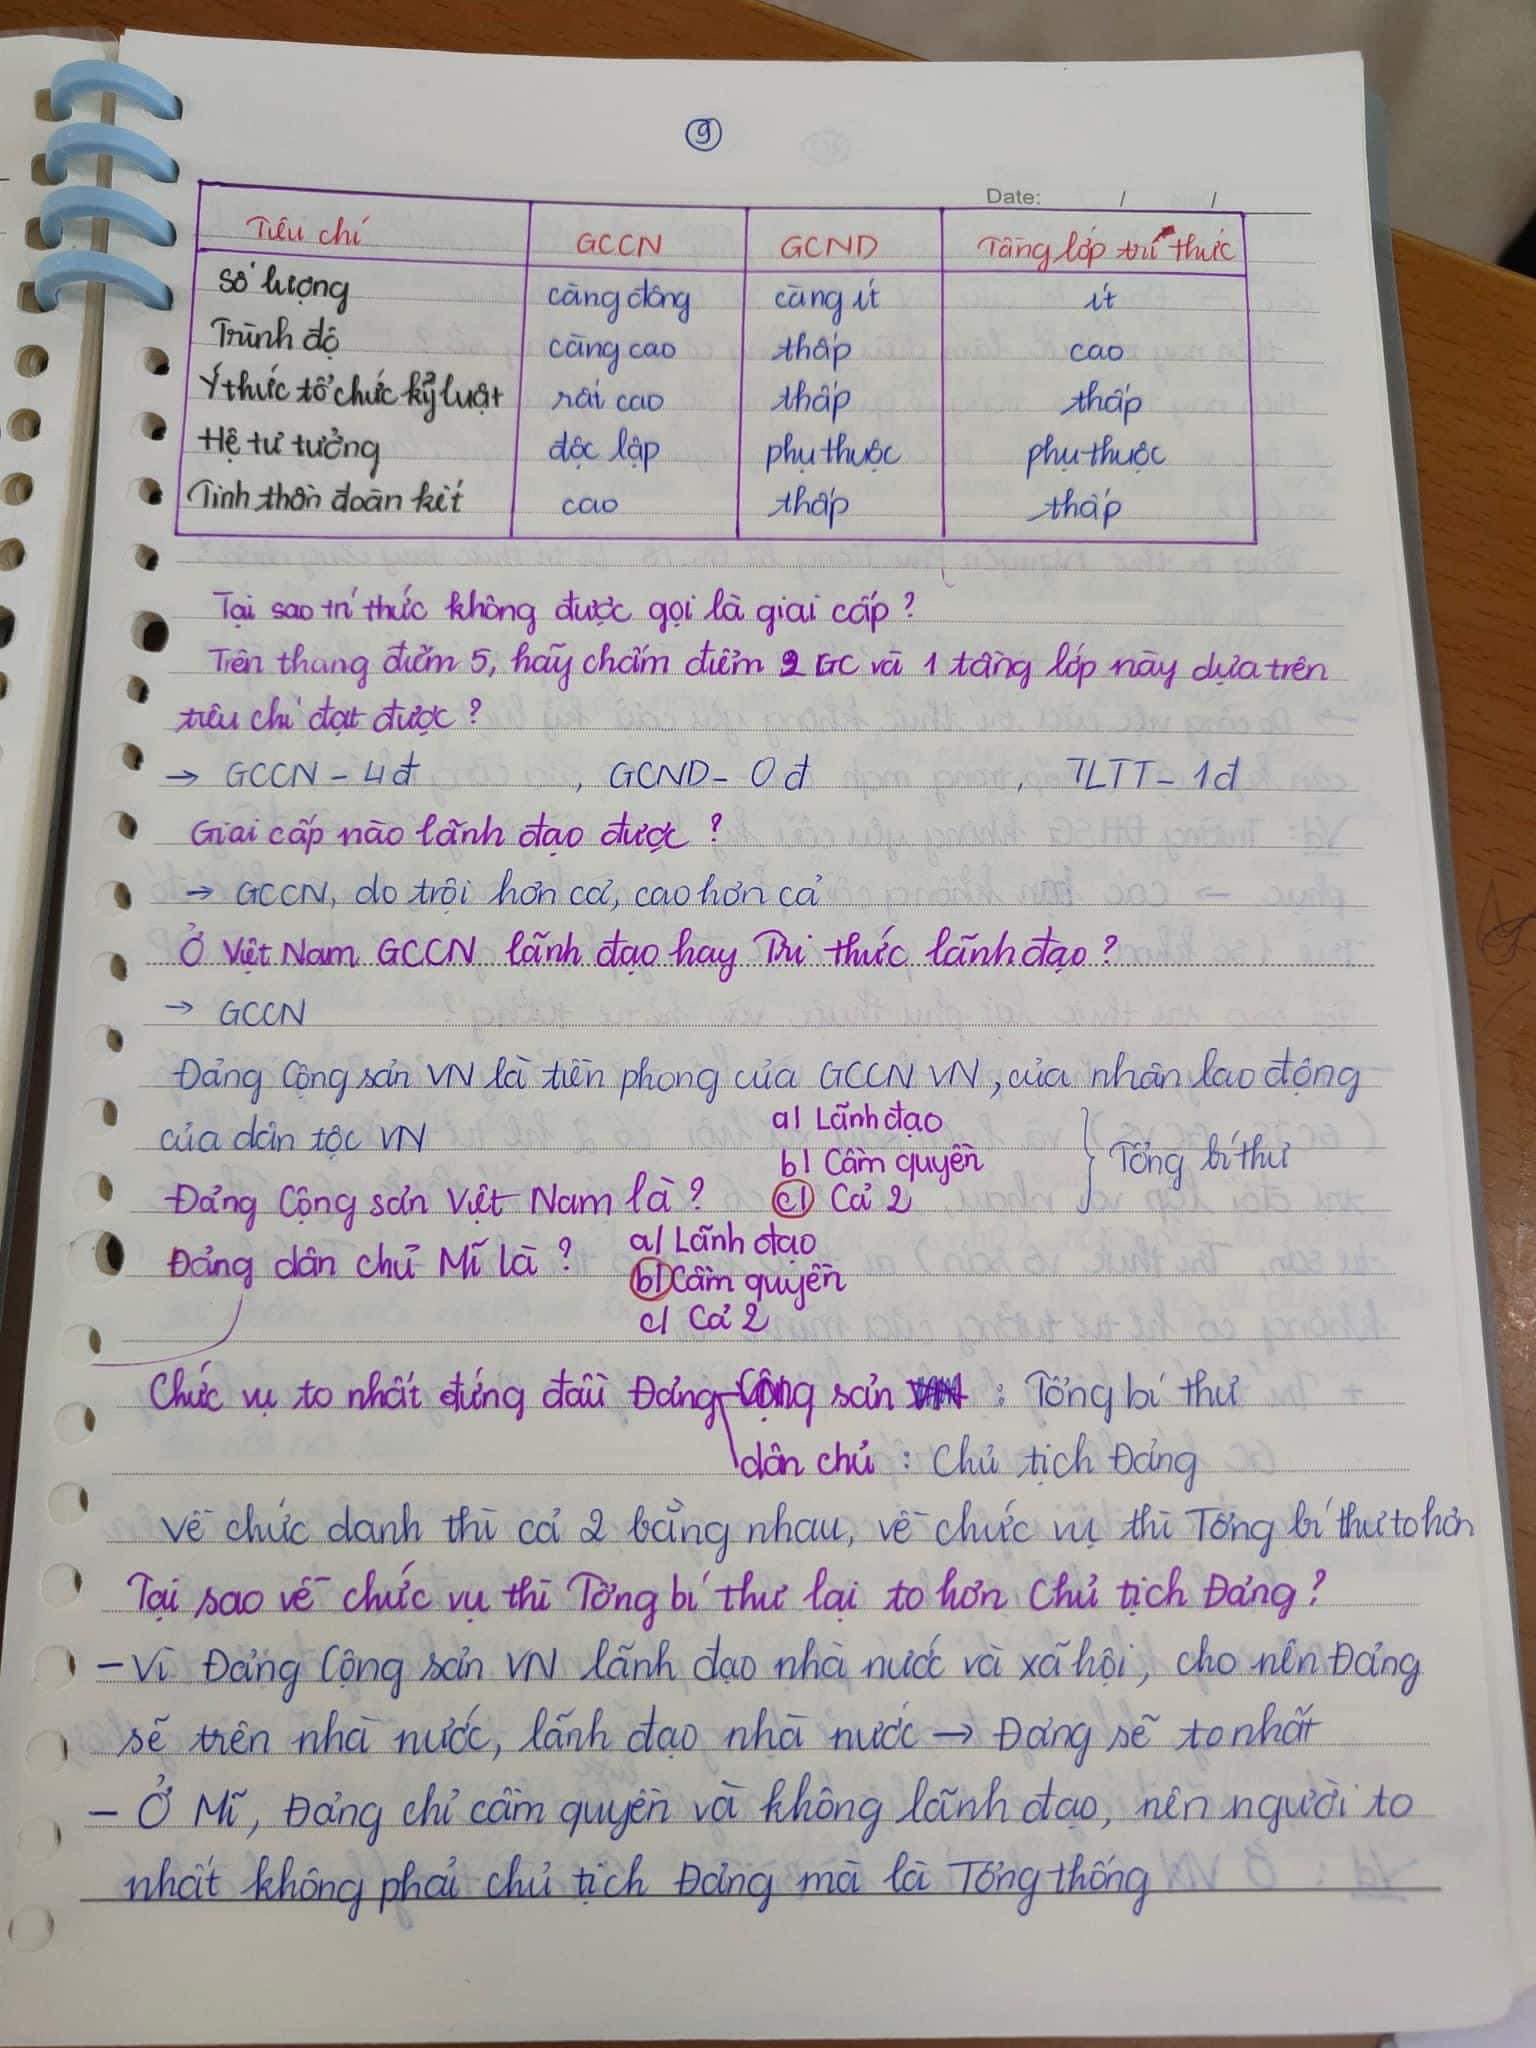 9
Date: / /
Tiêu chí GCCN GCND Tầng lớp trí thức
Số lượng càng đông càng ít ít
Trình độ càng cao thấp cao
Ý thức tổ chức kỷ luật rất cao thấp thấp
Hệ tư tưởng độc lập phụ thuộc phụ thuộc
Tinh thần đoàn kết cao thấp thấp
Tại sao trí thức không được gọi là giai cấp?
Trên thang điểm 5, hãy chấm điểm 2 GC và 1 tầng lớp này dựa trên
tiêu chí đạt được?
→ GCCN - 4đ , GCND - 0đ , TLTT - 1đ
Giai cấp nào lãnh đạo được?
→ GCCN, do trội hơn cả, cao hơn cả
Ở Việt Nam GCCN lãnh đạo hay Tri thức lãnh đạo?
→ GCCN
Đảng Cộng sản VN là tiên phong của GCCN VN, của nhân lao động
của dân tộc VN
Đảng Cộng sản Việt Nam là?
a) Lãnh đạo
b) Cầm quyền
c) Cả 2
Tổng bí thư
Đảng dân chủ Mĩ là?
a) Lãnh đạo
b) Cầm quyền
c) Cả 2
Chức vụ to nhất đứng đầu Đảng Cộng sản : Tổng bí thư
dân chủ : Chủ tịch Đảng
Về chức danh thì cả 2 bằng nhau, về chức vụ thì Tổng bí thư to hơn
Tại sao về chức vụ thì Tổng bí thư lại to hơn Chủ tịch Đảng?
- Vì Đảng Cộng sản VN lãnh đạo nhà nước và xã hội, cho nên Đảng
sẽ trên nhà nước, lãnh đạo nhà nước → Đảng sẽ to nhất
- Ở Mĩ, Đảng chỉ cầm quyền và không lãnh đạo, nên người to
nhất không phải chủ tịch Đảng mà là Tổng thống